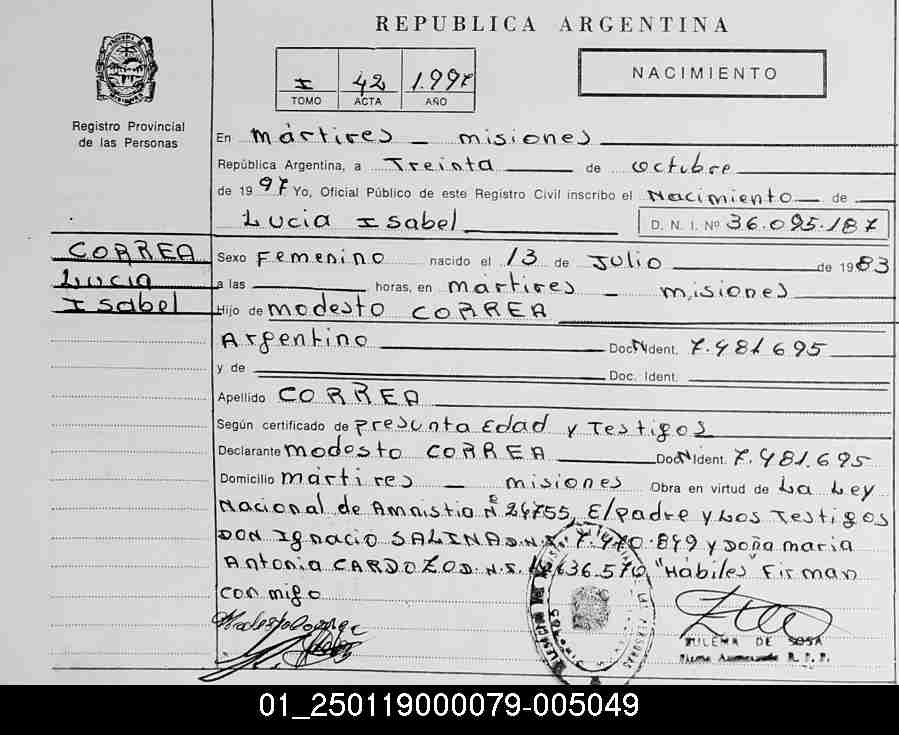 REPUBLICA ARGENTINA
I 42 1.997
TOMO ACTA AÑO
NACIMIENTO
Registro Provincial
de las Personas
En mártires — misiones
República Argentina, a Treinta de octubre
de 1997 Yo, Oficial Público de este Registro Civil inscribo el Nacimiento de
Lucia Isabel D. N. I. Nº 36.095.187
CORREA
Lucia
Isabel
Sexo Femenino nacido el 13 de Julio de 1983
a las horas, en mártires — misiones
Hijo de modesto CORREA
Argentino Doc. Ident. 7.481.695
y de Doc. Ident.
Apellido CORREA
Según certificado de presunta Edad y Testigos
Declarante modesto CORREA Doc. Ident. 7.481.695
Domicilio mártires — misiones Obra en virtud de La Ley
Nacional de Amnistia Nº 24755, El padre y Los Testigos
DON Ignacio SALINA D.N.I. 7.470.849 y Doña maria
Antonia CARDOZO D.N.I. "Hábiles" Firman
con migo
ZULEMA DE SOSA
01_250119000079-005049